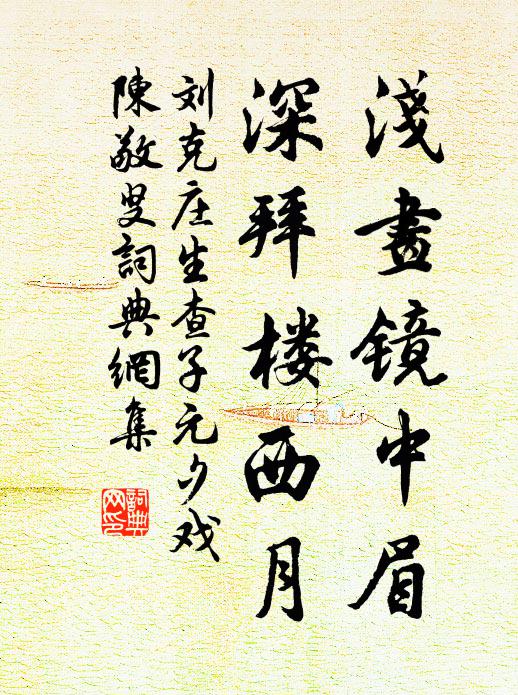 淺畫镜中眉
深拜楼西月
刘克庄生查子元夕戏
陳敬叟詞典網集
詞典
网印